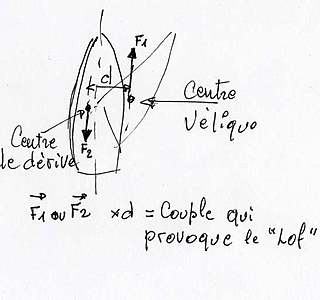 F1
d
Centre
Vélique
Centre
de dérive
F2
F1 ou F2 x d = Couple qui
provoque le "Lof"